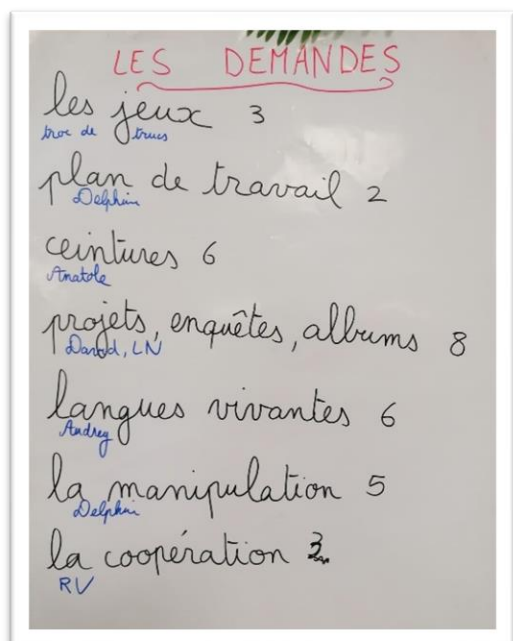 LES DEMANDES
les jeux 3
troc de trucs
plan de travail 2
Delphin
ceintures 6
Anatole
projets, enquêtes, albums 8
LN
langues vivantes 6
Audrey
la manipulation 5
Delphin
la coopération
RV